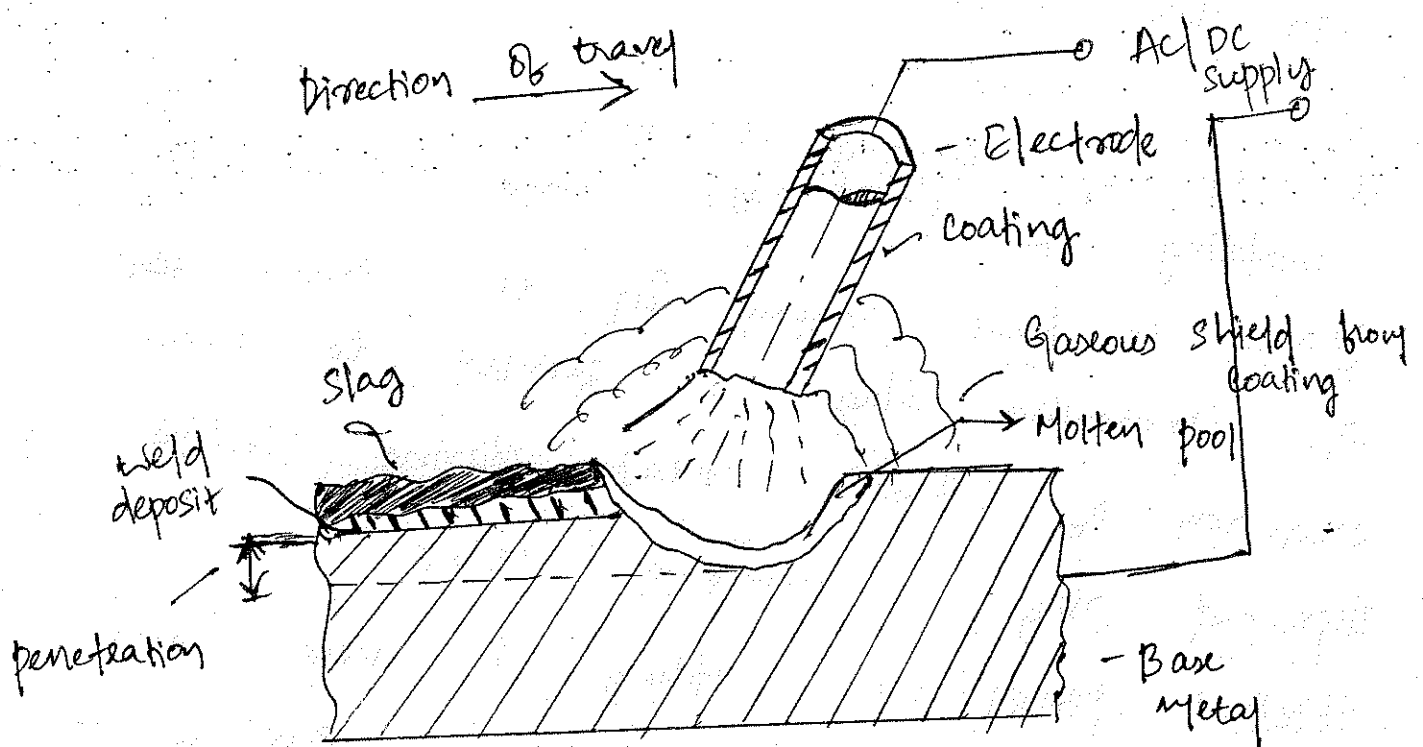 Direction of travel
AC/DC
supply
Electrode
Coating
Gaseous shield from
coating
Molten pool
Slag
weld
deposit
penetration
Base
Metal